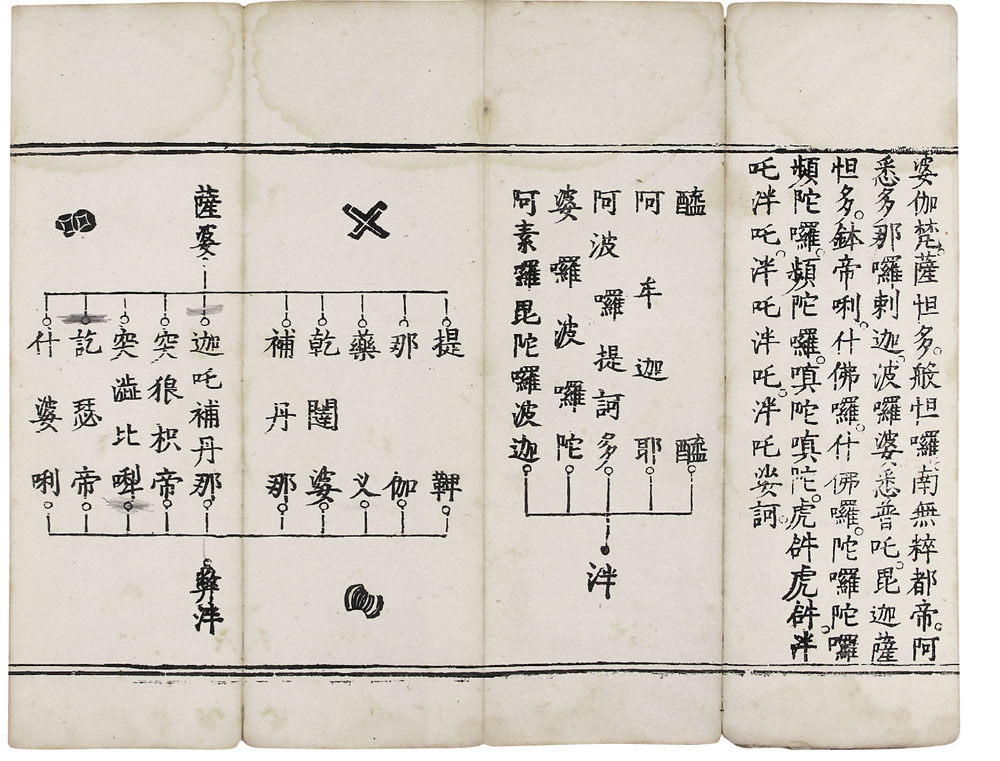 婆伽梵。薩怛多。般怛囉。南無粹都帝。阿
悉多那囉剌迦。波囉婆悉普吒。毘迦薩
怛多。鉢帝唎。什佛囉。什佛囉。陀囉陀囉
頻陀囉。頻陀囉。嗔陀嗔陀。虎𤙖虎𤙖。泮
吒泮吒。泮吒泮吒。泮吒娑訶。
醯醯
阿牟迦耶
阿波囉提訶多
婆囉波囉陀
阿素囉毘陀囉波迦
泮
提鞞
那伽
藥叉
乾闥婆
補丹那
薩婆
迦吒補丹那
突狼枳帝
突澁比
訖瑟帝
什婆唎
弊泮